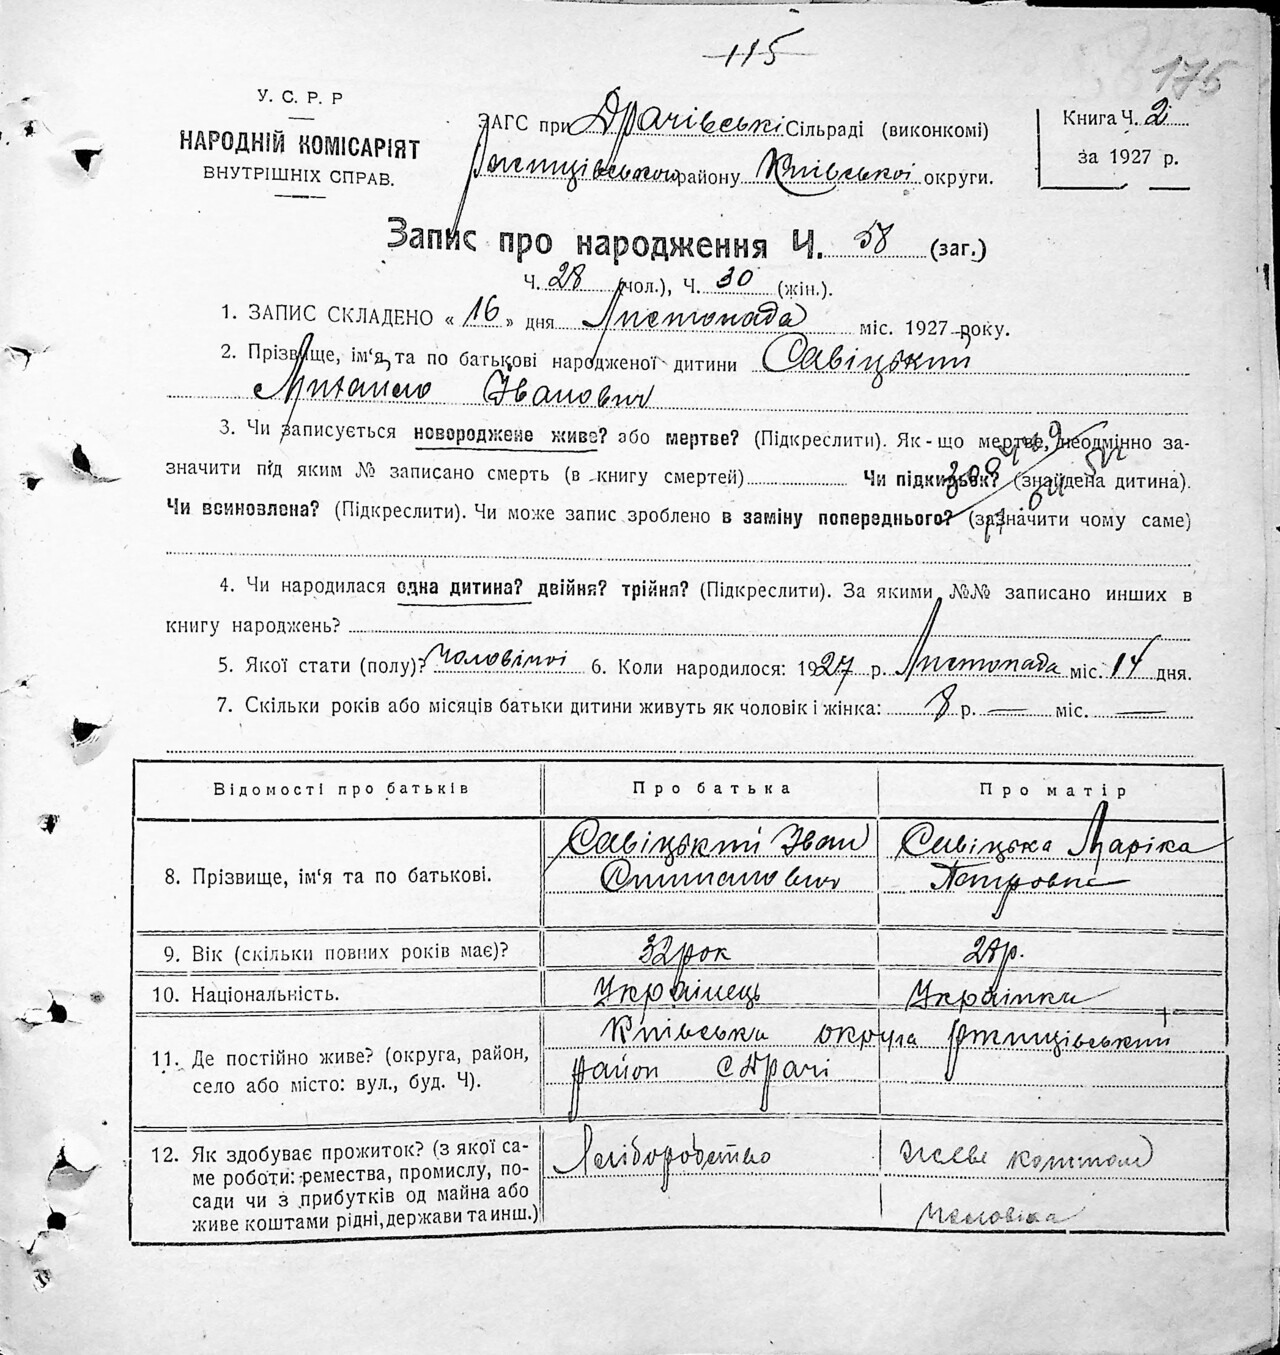 115
175
У. С. Р. Р
НАРОДНІЙ КОМІСАРІЯТ
ВНУТРІШНІХ СПРАВ.
ЗАГС при Драчівські Сільраді (виконкомі)
району Київської округи.
Книга Ч. 2
за 1927 р.
Запис про народження Ч. 58 (заг.)
Ч. 28 (чол.), Ч. 30 (жін.).
1. ЗАПИС СКЛАДЕНО « 16 » дня Листопада міс. 1927 року.
2. Прізвище, ім'я та по батькові народженої дитини Савіцький
Михайло Іванович
3. Чи записується новороджене живе? або мертве? (Підкреслити). Як-що мертве, неодмінно за-
значити під яким № записано смерть (в книгу смертей) Чи підкидьок? (знайдена дитина).
Чи всиновлена? (Підкреслити). Чи може запис зроблено в заміну попереднього? (зазначити чому саме)
4. Чи народилася одна дитина? двійня? трійня? (Підкреслити). За якими №№ записано инших в
книгу народжень?
5. Якої стати (полу)? Чоловічої 6. Коли народилося: 1927 р. Листопада міс. 14 дня.
7. Скільки років або місяців батьки дитини живуть як чоловік і жінка: 8 р. — міс. —
Відомості про батьків Про батька Про матір
8. Прізвище, ім'я та по батькові. Савіцький Іван Савіцька Маріка
Степанович Петровна
9. Вік (скільки повних років має)? 32 рок 28 р.
10. Національність. Українець Українка
11. Де постійно живе? (округа, район,
село або місто: вул., буд. Ч). Київська округа Ржищівський
район с Драчі
12. Як здобуває прожиток? (з якої са-
ме роботи: ремества, промислу, по-
сади чи з прибутків од майна або
живе коштами рідні, держави та инш.) Хліборобство живе коштом
чоловіка